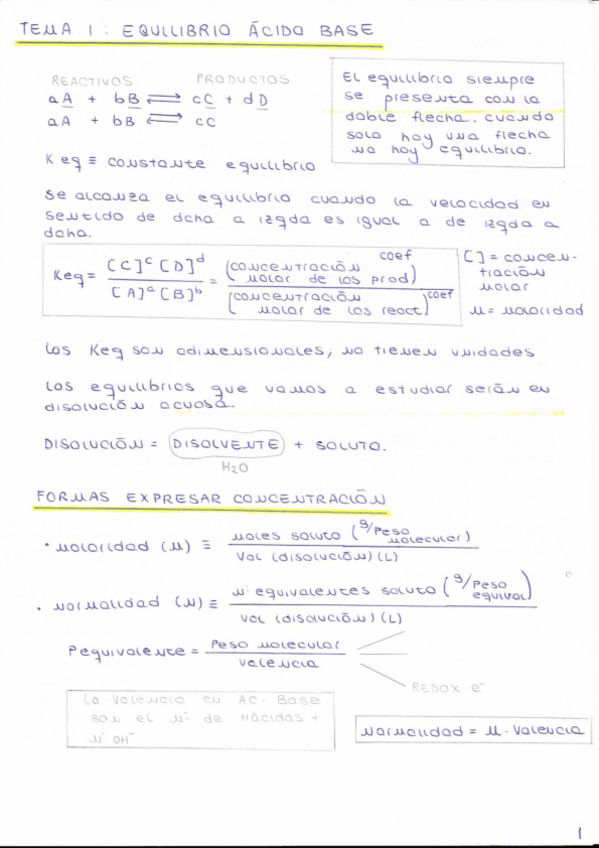 TEMA 1: EQUILIBRIO ÁCIDO BASE
REACTIVOS PRODUCTOS
aA + bB ⇌ cC + dD
aA + bB ⇌ cC
El equilibrio siempre
se presenta con la
doble flecha. cuando
solo hay una flecha
no hay equilibrio.
Keq ≡ constante equilibrio
Se alcanza el equilibrio cuando la velocidad en
sentido de dcha a izqda es igual a de izqda a
dcha.
Keq = [C]^c [D]^d / [A]^a [B]^b = (concentración molar de los prod)^coef / (concentración molar de los react)^coef
[ ] = concen-
tración
molar
M = molaridad
Los Keq son adimensionales, no tienen unidades
Los equilibrios que vamos a estudiar serán en
disolución acuosa.
DISOLUCIÓN = DISOLVENTE + SOLUTO.
H2O
FORMAS EXPRESAR CONCENTRACIÓN
• Molaridad (M) ≡ moles soluto (g/Peso molecular) / Vol (disolución) (L)
• Normalidad (N) ≡ nº equivalentes soluto (g/Peso equival) / Vol (disolución) (L)
Pequivalente = Peso molecular / valencia
REDOX e-
La valencia en AC-Base
son el Nº de H ácidos +
Nº OH-
Normalidad = M · Valencia
1